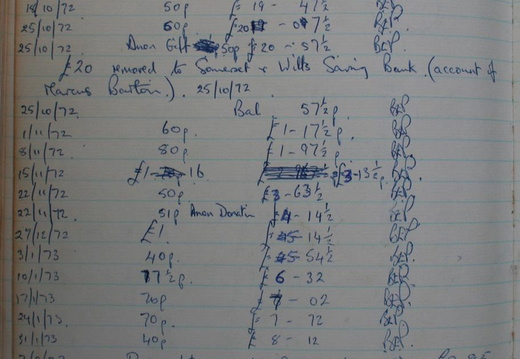 18/10/72 50p £ 19 - 47½ BEP
25/10/72 60p £20 - 07½ BEP
25/10/72 Anon Gift 50p £20 - 57½ BEP
£20 removed to Somerset & Wilts Saving Bank. (account of
Marcus Barton.) 25/10/72.
25/10/72 Bal 57½p. BEP
1/11/72 60p £1-17½p. BEP
8/11/72 80p £1-97½ BEP
15/11/72 £1- 16 £3-13½p. BEP
22/11/72 50p £3-63½ BEP
22/11/72. 51p Anon Donatin £4-14½ BEP
27/12/72 £1 £5-14½ BEP
3/1/73 40p £5-54½ BEP
10/1/73 77½p. £6-32 BEP
17/1/73 70p £7-02 BEP
24/1/73. 70p. £7-72 BEP
31/1/73 40p £8-12 BEP